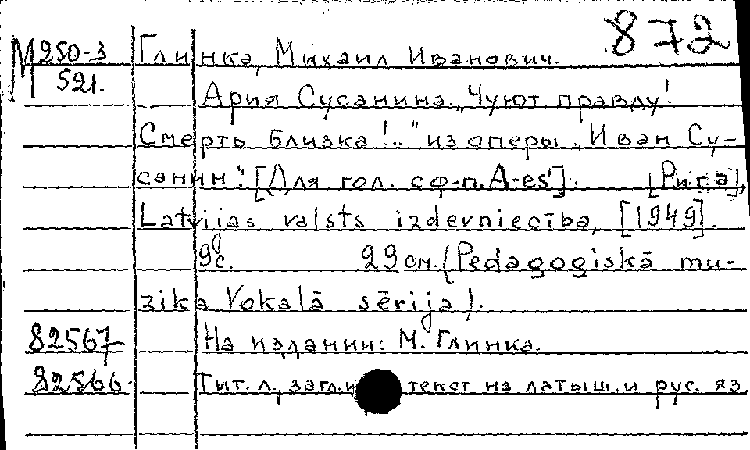 872
М 250-3 Глинка, Михаил Иванович.
521. Ария Сусанина „Чуют правду!
Смерть близка!.." из оперы „Иван Су-
санин". [Для гол. с ф-п. A-es]. [Рига],
Latvijas valsts izdevniecība, [1949].
9с. 29 см. (Pedagogiskā mu-
zika Vokalā sērija).
82567 На издании: М. Глинка.
82566 Тит. л., загл. и текст на латыш. и рус. яз